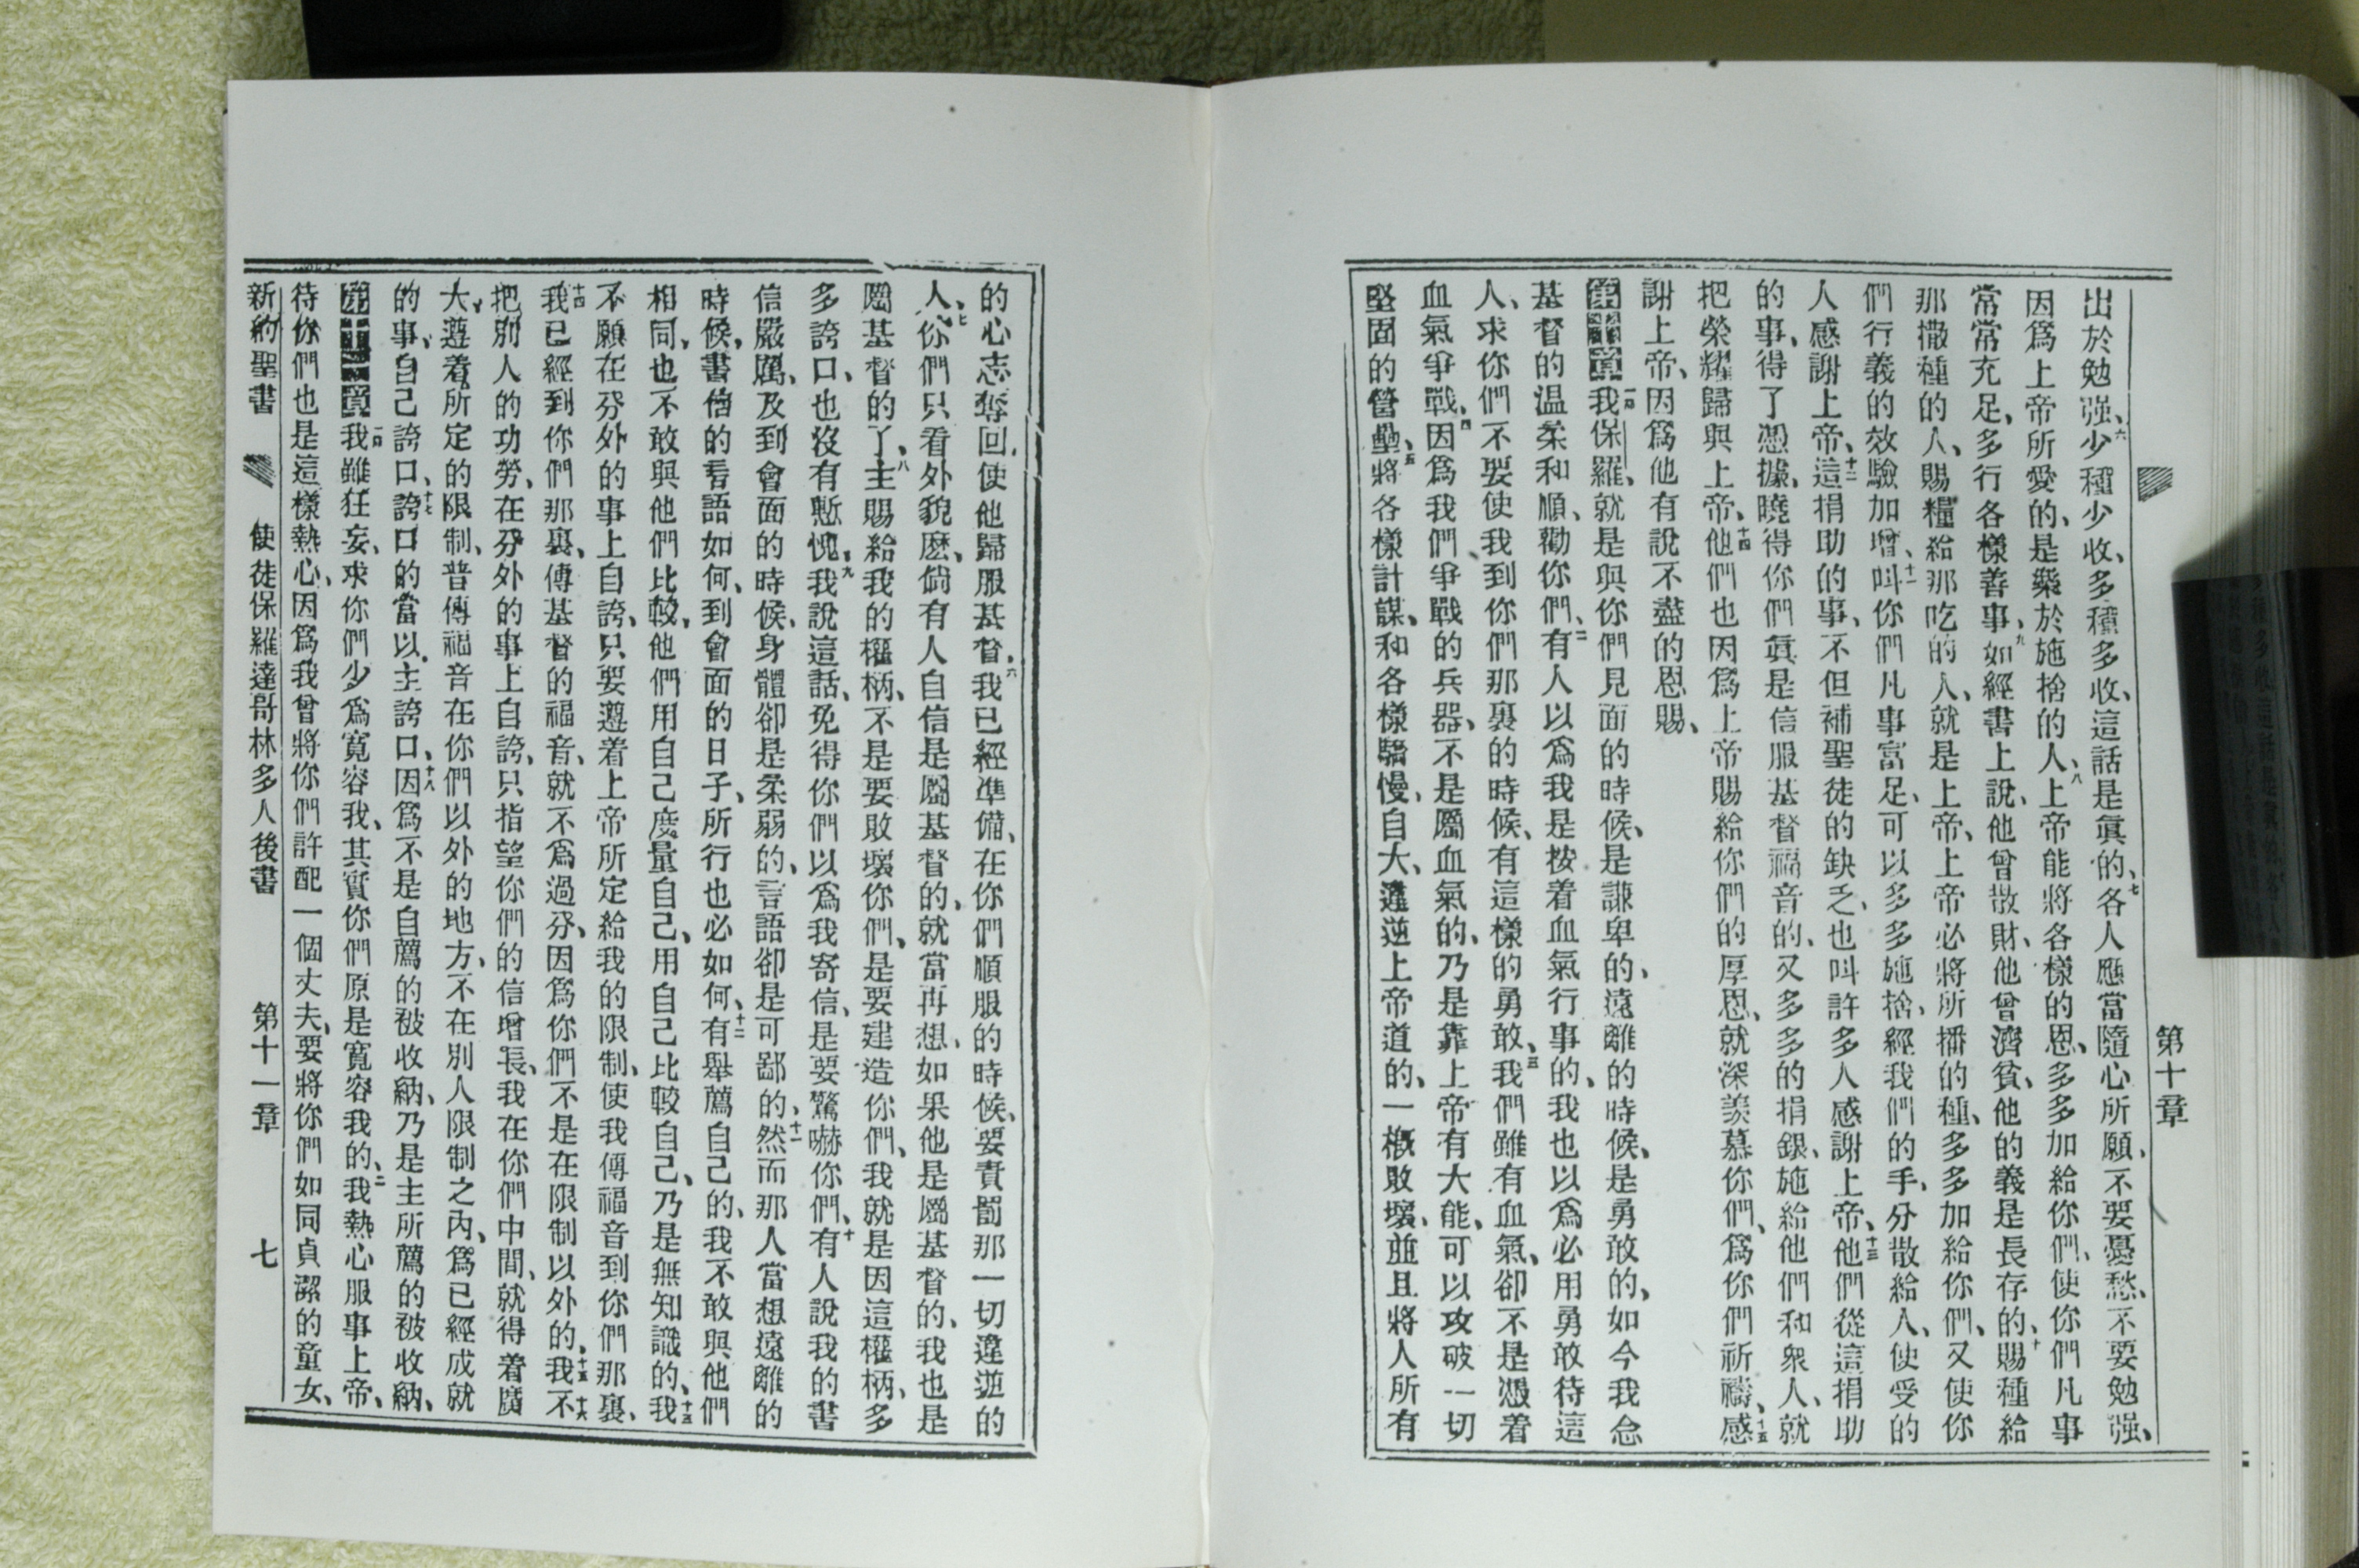 第十章
出於勉强、六少種少收、多種多收、這話是眞的、七各人應當隨心所願、不要憂愁、不要勉强、
因爲上帝所愛的、是樂於施捨的人、八上帝能將各樣的恩、多多加給你們、使你們凡事
常常充足、多行各樣善事、九如經書上說、他曾散財、他曾濟貧、他的義是長存的、十賜種給
那撒種的人、賜糧給那吃的人、就是上帝、上帝必將所播的種、多多加給你們、又使你
們行義的效驗加增、十一叫你們凡事富足、可以多多施捨、經我們的手、分散給人、使受的
人感謝上帝、十二這捐助的事、不但補聖徒的缺乏、也叫許多人感謝上帝、十三他們從這捐助
的事、得了憑據、曉得你們眞是信服基督福音的、又多多的捐銀、施給他們和衆人、就
把榮耀歸與上帝、十四他們也因爲上帝賜給你們的厚恩、就深羨慕你們、爲你們祈禱、十五感
謝上帝、因爲他有說不盡的恩賜、
第十章一我保羅、就是與你們見面的時候、是謙卑的、遠離的時候、是勇敢的、如今我念
基督的温柔和順、勸你們、二有人以爲我是按着血氣行事的、我也以爲必用勇敢待這
人、求你們不要使我到你們那裏的時候、有這樣的勇敢、三我們雖有血氣、卻不是憑着
血氣爭戰、四因爲我們爭戰的兵器、不是屬血氣的、乃是靠上帝有大能、可以攻破一切
堅固的營壘、五將各樣計謀、和各樣驕慢、自大、違逆上帝道的、一概敗壞、並且將人所有
的心志奪回、使他歸服基督、六我已經準備、在你們順服的時候、要責罰那一切違逆的
人、七你們只看外貌麽、倘有人自信是屬基督的、就當再想、如果他是屬基督的、我也是
屬基督的了、八主賜給我的權柄、不是要敗壞你們、是要建造你們、我就是因這權柄、多
多誇口、也沒有慙愧、九我說這話、免得你們以爲我寄信、是要驚嚇你們、十有人說我的書
信嚴厲、及到會面的時候、身體卻是柔弱的、言語卻是可鄙的、十一然而那人當想遠離的
時候、書信的言語如何、到會面的日子、所行也必如何、十二有舉薦自己的、我不敢與他們
相同、也不敢與他們比較、他們用自己度量自己、用自己比較自己、乃是無知識的、十三我
不願在分外的事上自誇、只要遵着上帝所定給我的限制、使我傳福音到你們那裏、
十四我已經到你們那裏、傳基督的福音、就不爲過分、因爲你們不是在限制以外的、十五我不十六
把別人的功勞、在分外的事上自誇、只指望你們的信增長、我在你們中間、就得着廣
大、遵着所定的限制、普傳福音在你們以外的地方、不在別人限制之內、爲已經成就
的事、自己誇口、十七誇口的當以主誇口、十八因爲不是自薦的被收納、乃是主所薦的被收納、
第十一章一我雖狂妄、求你們少爲寛容我、其實你們原是寛容我的、二我熱心服事上帝、
待你們也是這樣熱心、因爲我曾將你們許配一個丈夫、要將你們如同貞潔的童女、
新約聖書 使徒保羅達哥林多人後書 第十一章 七